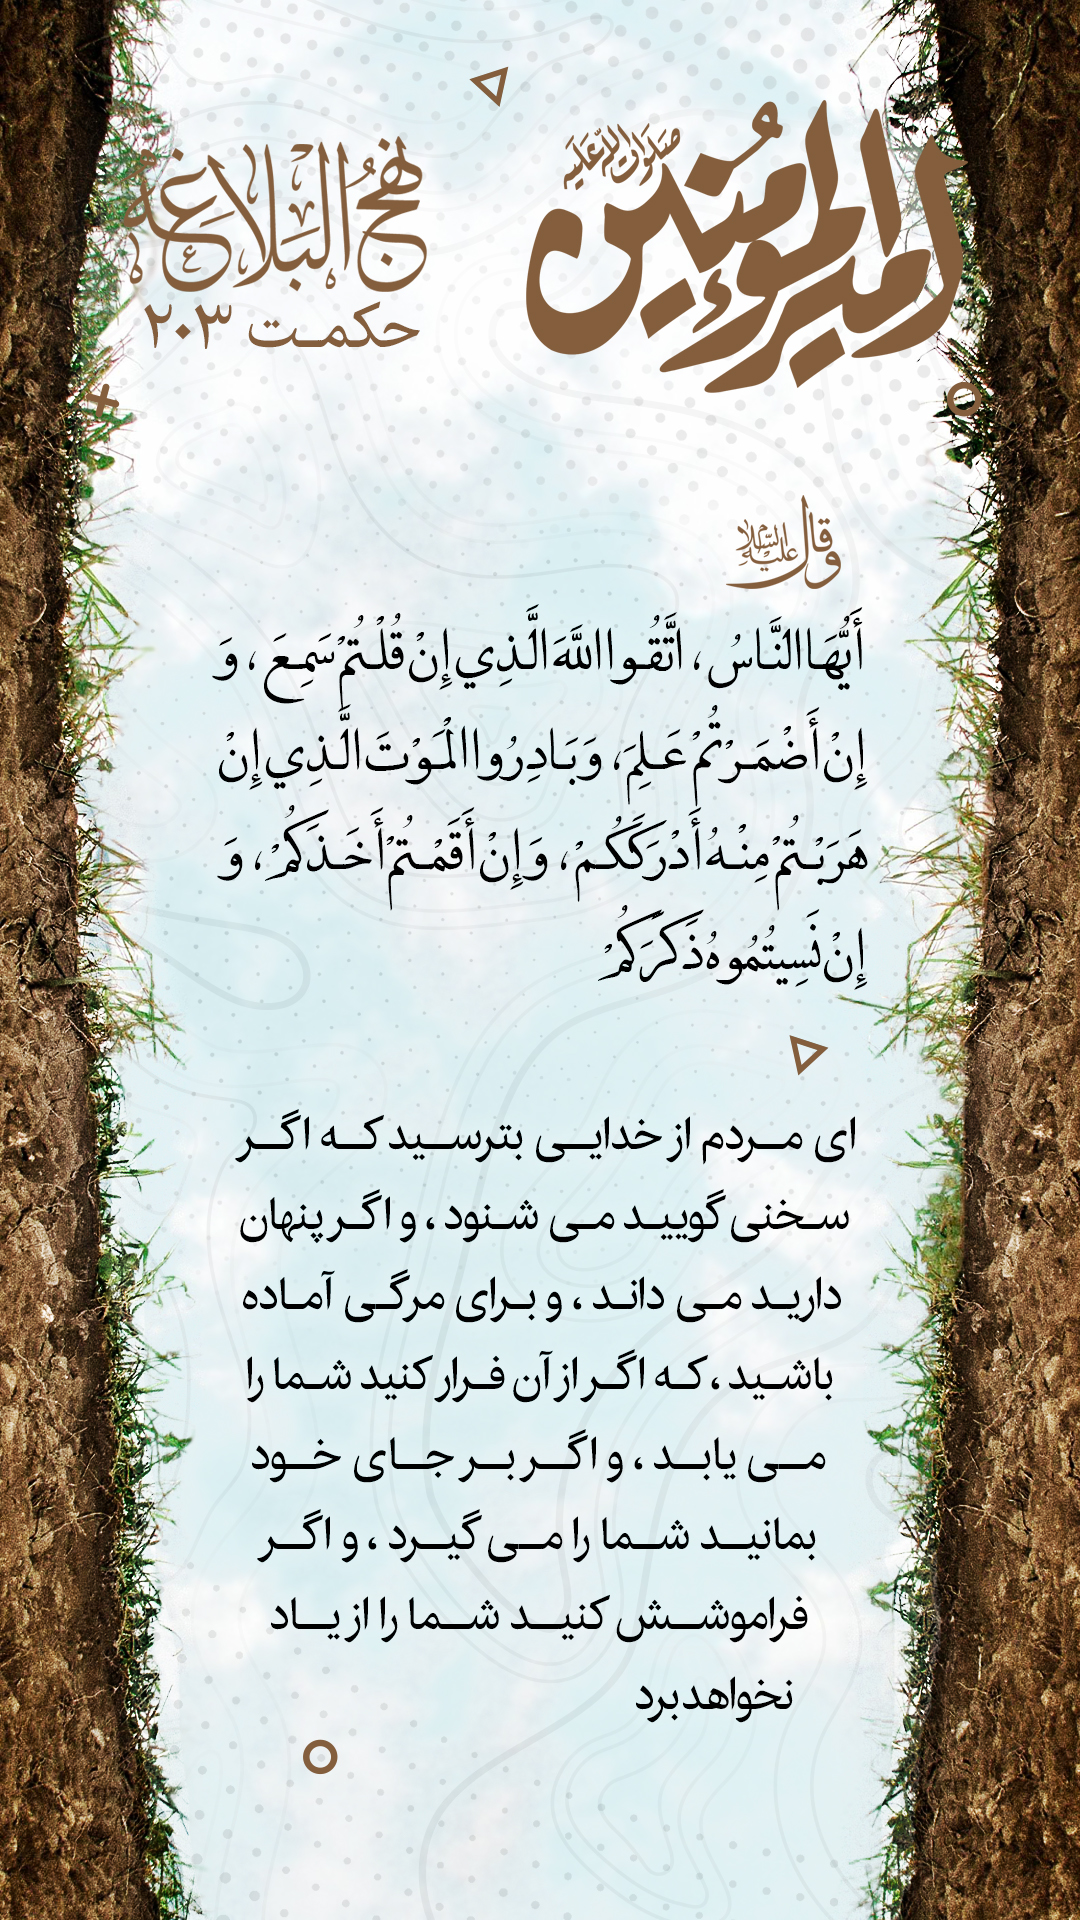 أمیرالمؤمنین
صلوات الله علیه
نهج البلاغة
حکمت ۲۰۳
وقال علیه السلام
أَيُّهَا النَّاسُ ، اتَّقُوا اللَّهَ الَّذِي إِنْ قُلْتُمْ سَمِعَ ، وَ
إِنْ أَضْمَرْتُمْ عَلِمَ، وَ بَادِرُوا الْمَوْتَ الَّذِي إِنْ
هَرَبْتُمْ مِنْهُ أَدْرَكَكُمْ، وَ إِنْ أَقَمْتُمْ أَخَذَكُمْ، وَ
إِنْ نَسِيتُمُوهُ ذَكَرَكُمْ
ای مردم از خدایی بترسید که اگر
سخنی گویید می شنود ، و اگر پنهان
دارید می داند ، و برای مرگی آماده
باشید ، که اگر از آن فرار کنید شما را
می یابد ، و اگر بر جای خود
بمانید شما را می گیرد ، و اگر
فراموشش کنید شما را از یاد
نخواهد برد